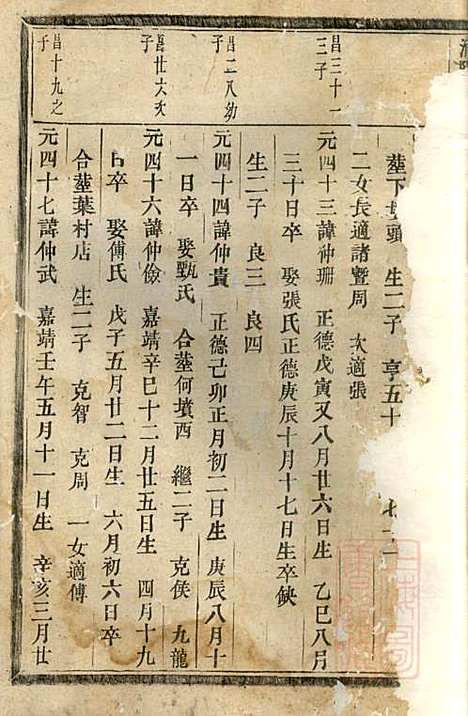 塟下
頭 生二子 亨五十
二女長適諸暨周 次適張
昌三十一
三子
元四十三諱仲珊 正德戊寅又八月廿六日生 乙巳八月
三十日卒 娶張氏正德庚辰十月十七日生卒缺
生二子 良三 良四
昌二八幼
子
元四十四諱仲貴 正德己卯正月初二日生 庚辰八月十
一日卒 娶甄氏 合塟何墳西 繼二子 克侯 九龍
昌廿六次
子
元四十六諱仲儉 嘉靖辛巳十二月廿五日生 四月十九
日卒 娶傅氏 戊子五月廿二日生 六月初六日卒
合塟葉村店 生二子 克智 克周 一女適傅
昌十九之
子
元四十七諱仲武 嘉靖壬午五月十一日生 辛亥三月廿